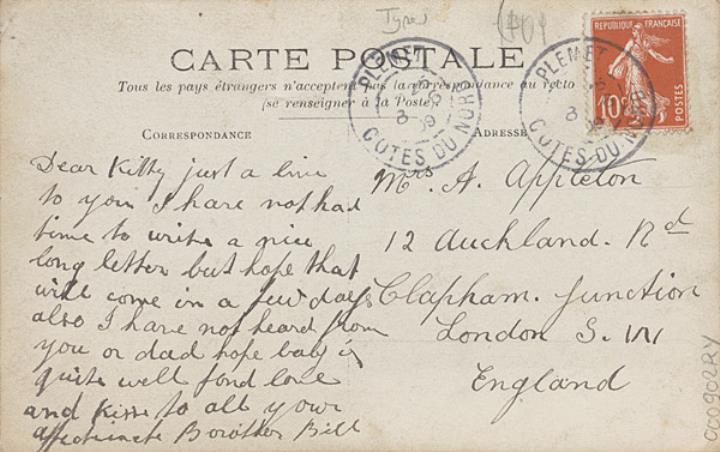 Types
CARTE POSTALE
Tous les pays étrangers n'acceptent pas la correspondance au recto
(se renseigner à la Poste)
CORRESPONDANCE
ADRESSE
PLEMET
8
09
COTES-DU-NORD
PLEMET
8
COTES-DU-NORD
REPUBLIQUE FRANÇAISE
10c
POSTES
Dear Kitty just a line
to you I have not had
time to write a nice
long letter but hope that
will come in a few days
also I have not heard from
you or dad hope baby is
quite well fond love
and kisses to all your
affectionate Borother Bill
Mrs. A. Appleton
12 Auckland. Rd
Clapham. Junction
London S. W
England
CC0902RY